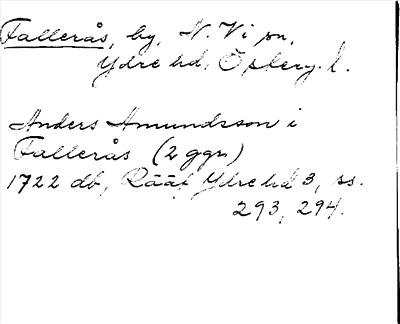 Fallerås, by, N. Vi sn,
Ydre hd, Österg. l.
Anders Amundsson i
Fallerås (2 ggr)
1722 db, Rääf Ydre hd 3, ss.
293, 294.